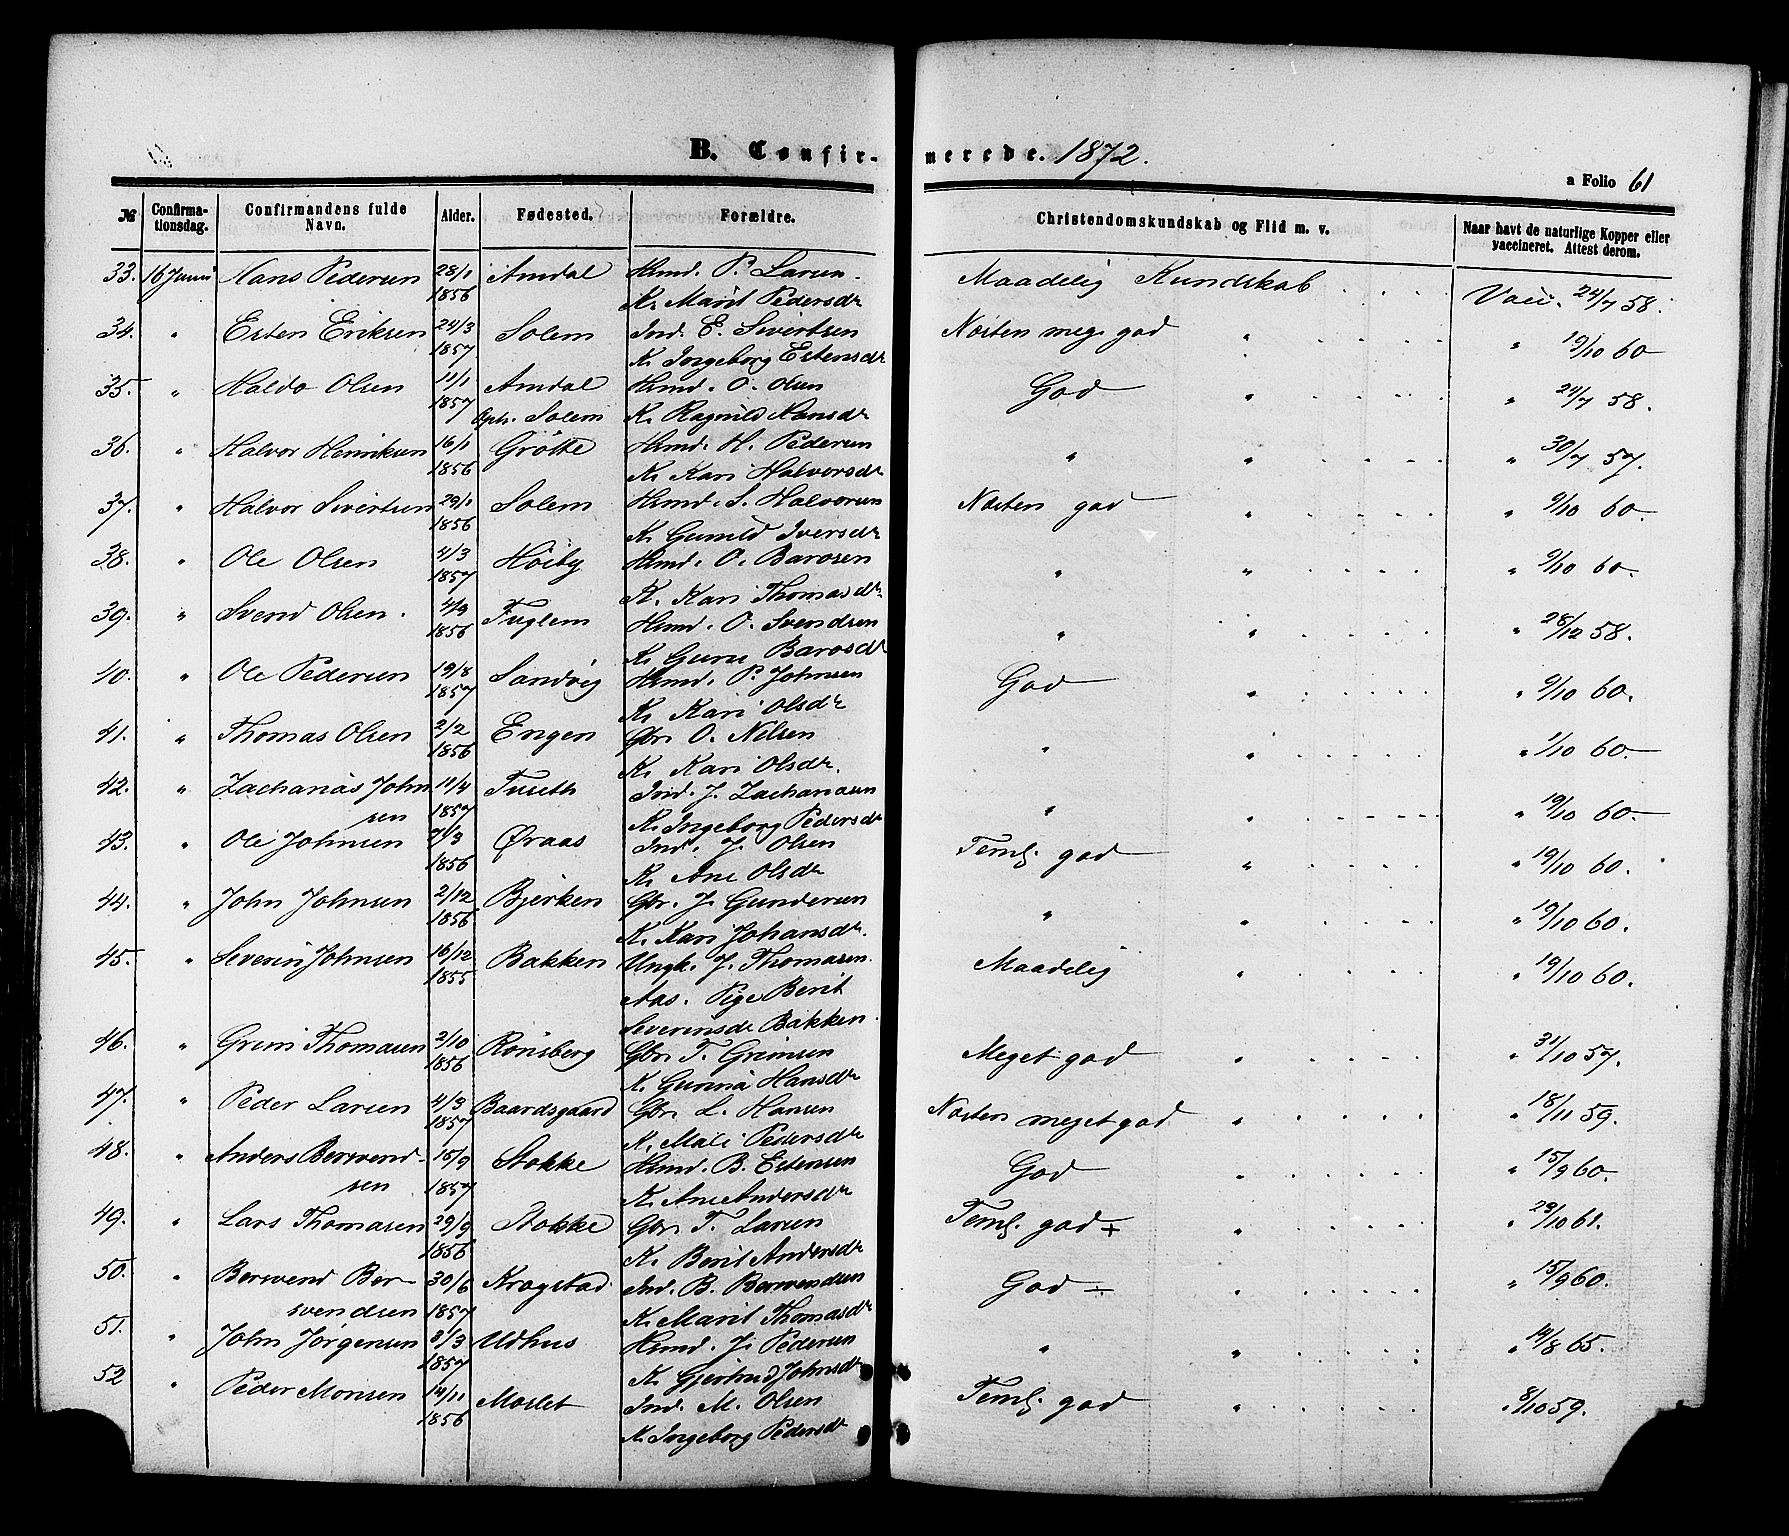 B. Confirmerede. 1872.
a Folio 61
№ Confirmationsdag. Confirmandens fulde Navn. Alder. Fødested. Forældre. Christendomskundskab og Flid m. v. Naar havt de naturlige Kopper eller vaccineret. Attest derom.
33. 16 Juni Hans Pedersen 28/1 1856 Amdal Hsmd. P. Larsen Maadelig Kundskab Vacc. 24/7 58.
K. Marit Pedersdr
34. " Esten Eriksen 24/3 1857 Solem Ind. E. Sivertsen Næsten meg. god " " 19/10 60
K. Ingeborg Estensdr
35. " Haldo Olsen 11/1 1857 Amdal Hsmd. O. Olsen God " " 24/7 58.
Oph. Solem K. Ragnild Hansdr
36. " Halvor Henriksen 16/1 1856 Grötte Hsmd. H. Pedersen " " " 30/7 57.
K. Kari Halvorsdr
37. " Halvor Sivertsen 29/1 1856 Solem Hsmd. S. Halvorsen Næsten god " " 9/10 60.
K. Gunild Iversdr
38. " Ole Olsen 4/3 1857 Höiby Hsmd. O. Barosen " " " 9/10 60.
K. Kari Thomasdr
39. " Svend Olsen. 4/9 1856 Fuglem Hsmd. O. Svendsen " " " 28/12 58.
K. Guru Barosdr
40. " Ole Pedersen 19/8 1857 Sandvig Hsmd. P. Johnsen God " " 9/10 60.
K. Kari Olsdr
41. " Thomas Olsen 2/2 1856 Engen Gbr. O. Nilsen " " " 1/10 60.
K. Kari Olsdr.
42. " Zacharias John 11/4 1857 Tuseth Ind. J. Zachariasen " " " 19/10 60.
sen K. Ingeborg Pedersdr
43. " Ole Johnsen 7/3 1856 Øraas Ind. J. Olsen Teml. god " " 19/10 60.
K. Ane Olsdr
44. " John Johnsen 2/12 1856 Bjerken Gbr. J. Gundersen " " " 19/10 60.
K. Kari Johansdr.
45. " Severin Johnsen 16/12 1855 Bakken Ungk. J. Thomasen Maadelig " " 19/10 60.
Aas. Pige Berit
Severinsdr Bakken.
46. " Grim Thomasen 2/10 1856 Rönsberg Gbr. T. Grimsen Meget god " " 31/10 57.
K. Hansdr
47. " Peder Larsen 4/3 1857 Baardsgaard Gbr. L. Hansen Næsten meget god " " 18/11 59.
K. Mali Pedersdr
48. " Anders Bersvend- 15/9 1857 Stokke Hsmd. B. Estensen God " " 15/9 60.
sen K. Ane Andersdr
49. " Lars Thomasen 29/9 1856 Stokke Gbr. T. Larsen Teml. god + " " 29/10 61.
K. Berit Andersdr
50. " Bersvend Ber- 30/6 1857 Krogstad Ind. B. Bersvendsen God ÷ " 15/9 60.
svendsen K. Marit Thomasdr
51. " John Jörgensen 3/3 1857 Udhus Hsmd. J. Pedersen " " " 14/8 65.
K. Gjertrud Johnsdr
52 " Peder Monsen 14/11 1856 Moslet Ind. M. Olsen Teml. god " " 8/10 59.
K. Ingeborg Pedersdr